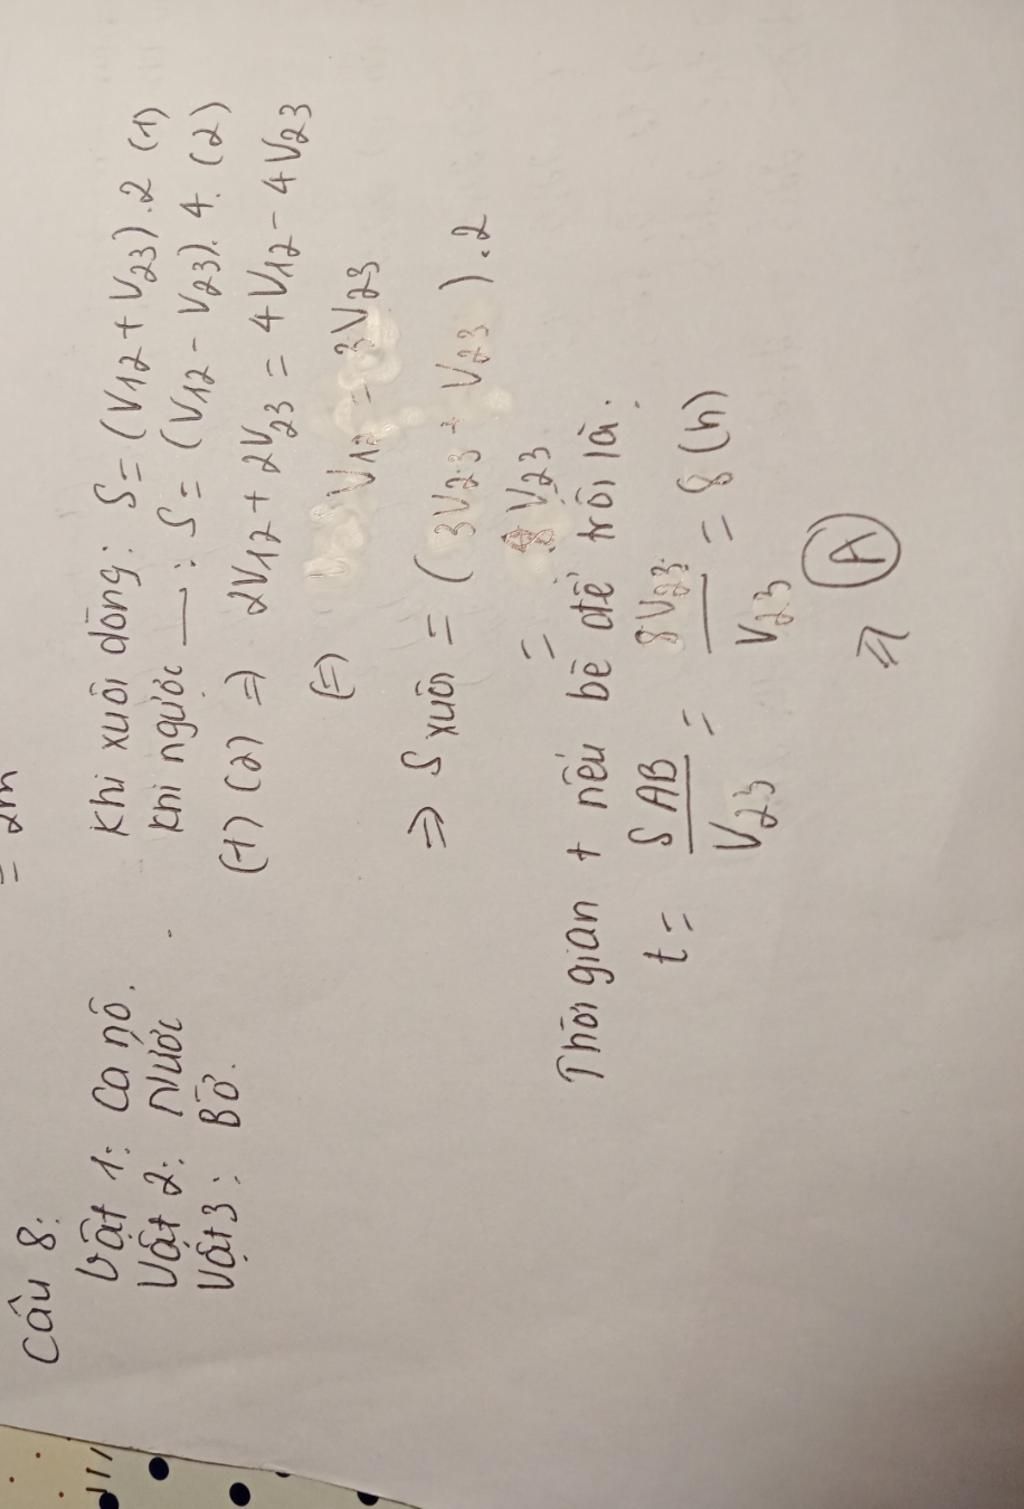 = 2m
Câu 8:
Vật 1: Ca nô.
Vật 2: Nước
Vật 3: Bờ.
Khi xuôi dòng: S = (V12 + V23).2 (1)
Khi ngược __: S = (V12 - V23).4. (2)
(1) (2) => 2V12 + 2V23 = 4V12 - 4V23
(=) V12 = 3V23
=> S xuôi = (3V23 + V23).2
= 8V23
Thời gian t nếu bè để trôi là:
t = SAB/V23 = 8V23/V23 = 8 (h)
=> A